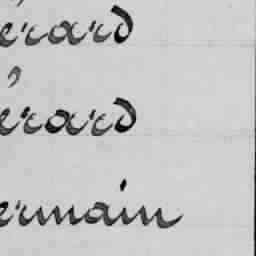 érard
érard
ermain